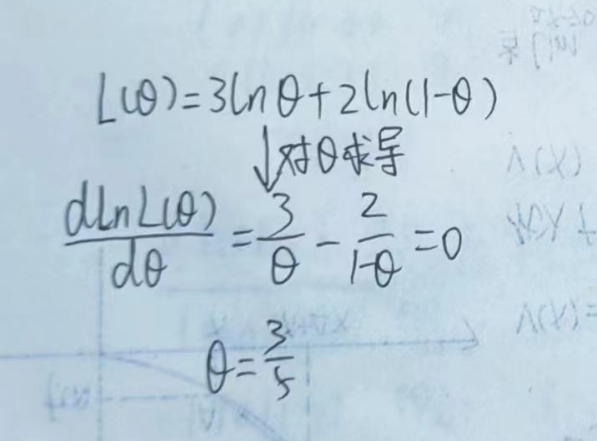 L(θ)=3lnθ+2ln(1-θ)
↓对θ求导
dlnL(θ)/dθ = 3/θ - 2/(1-θ) = 0
θ=3/5